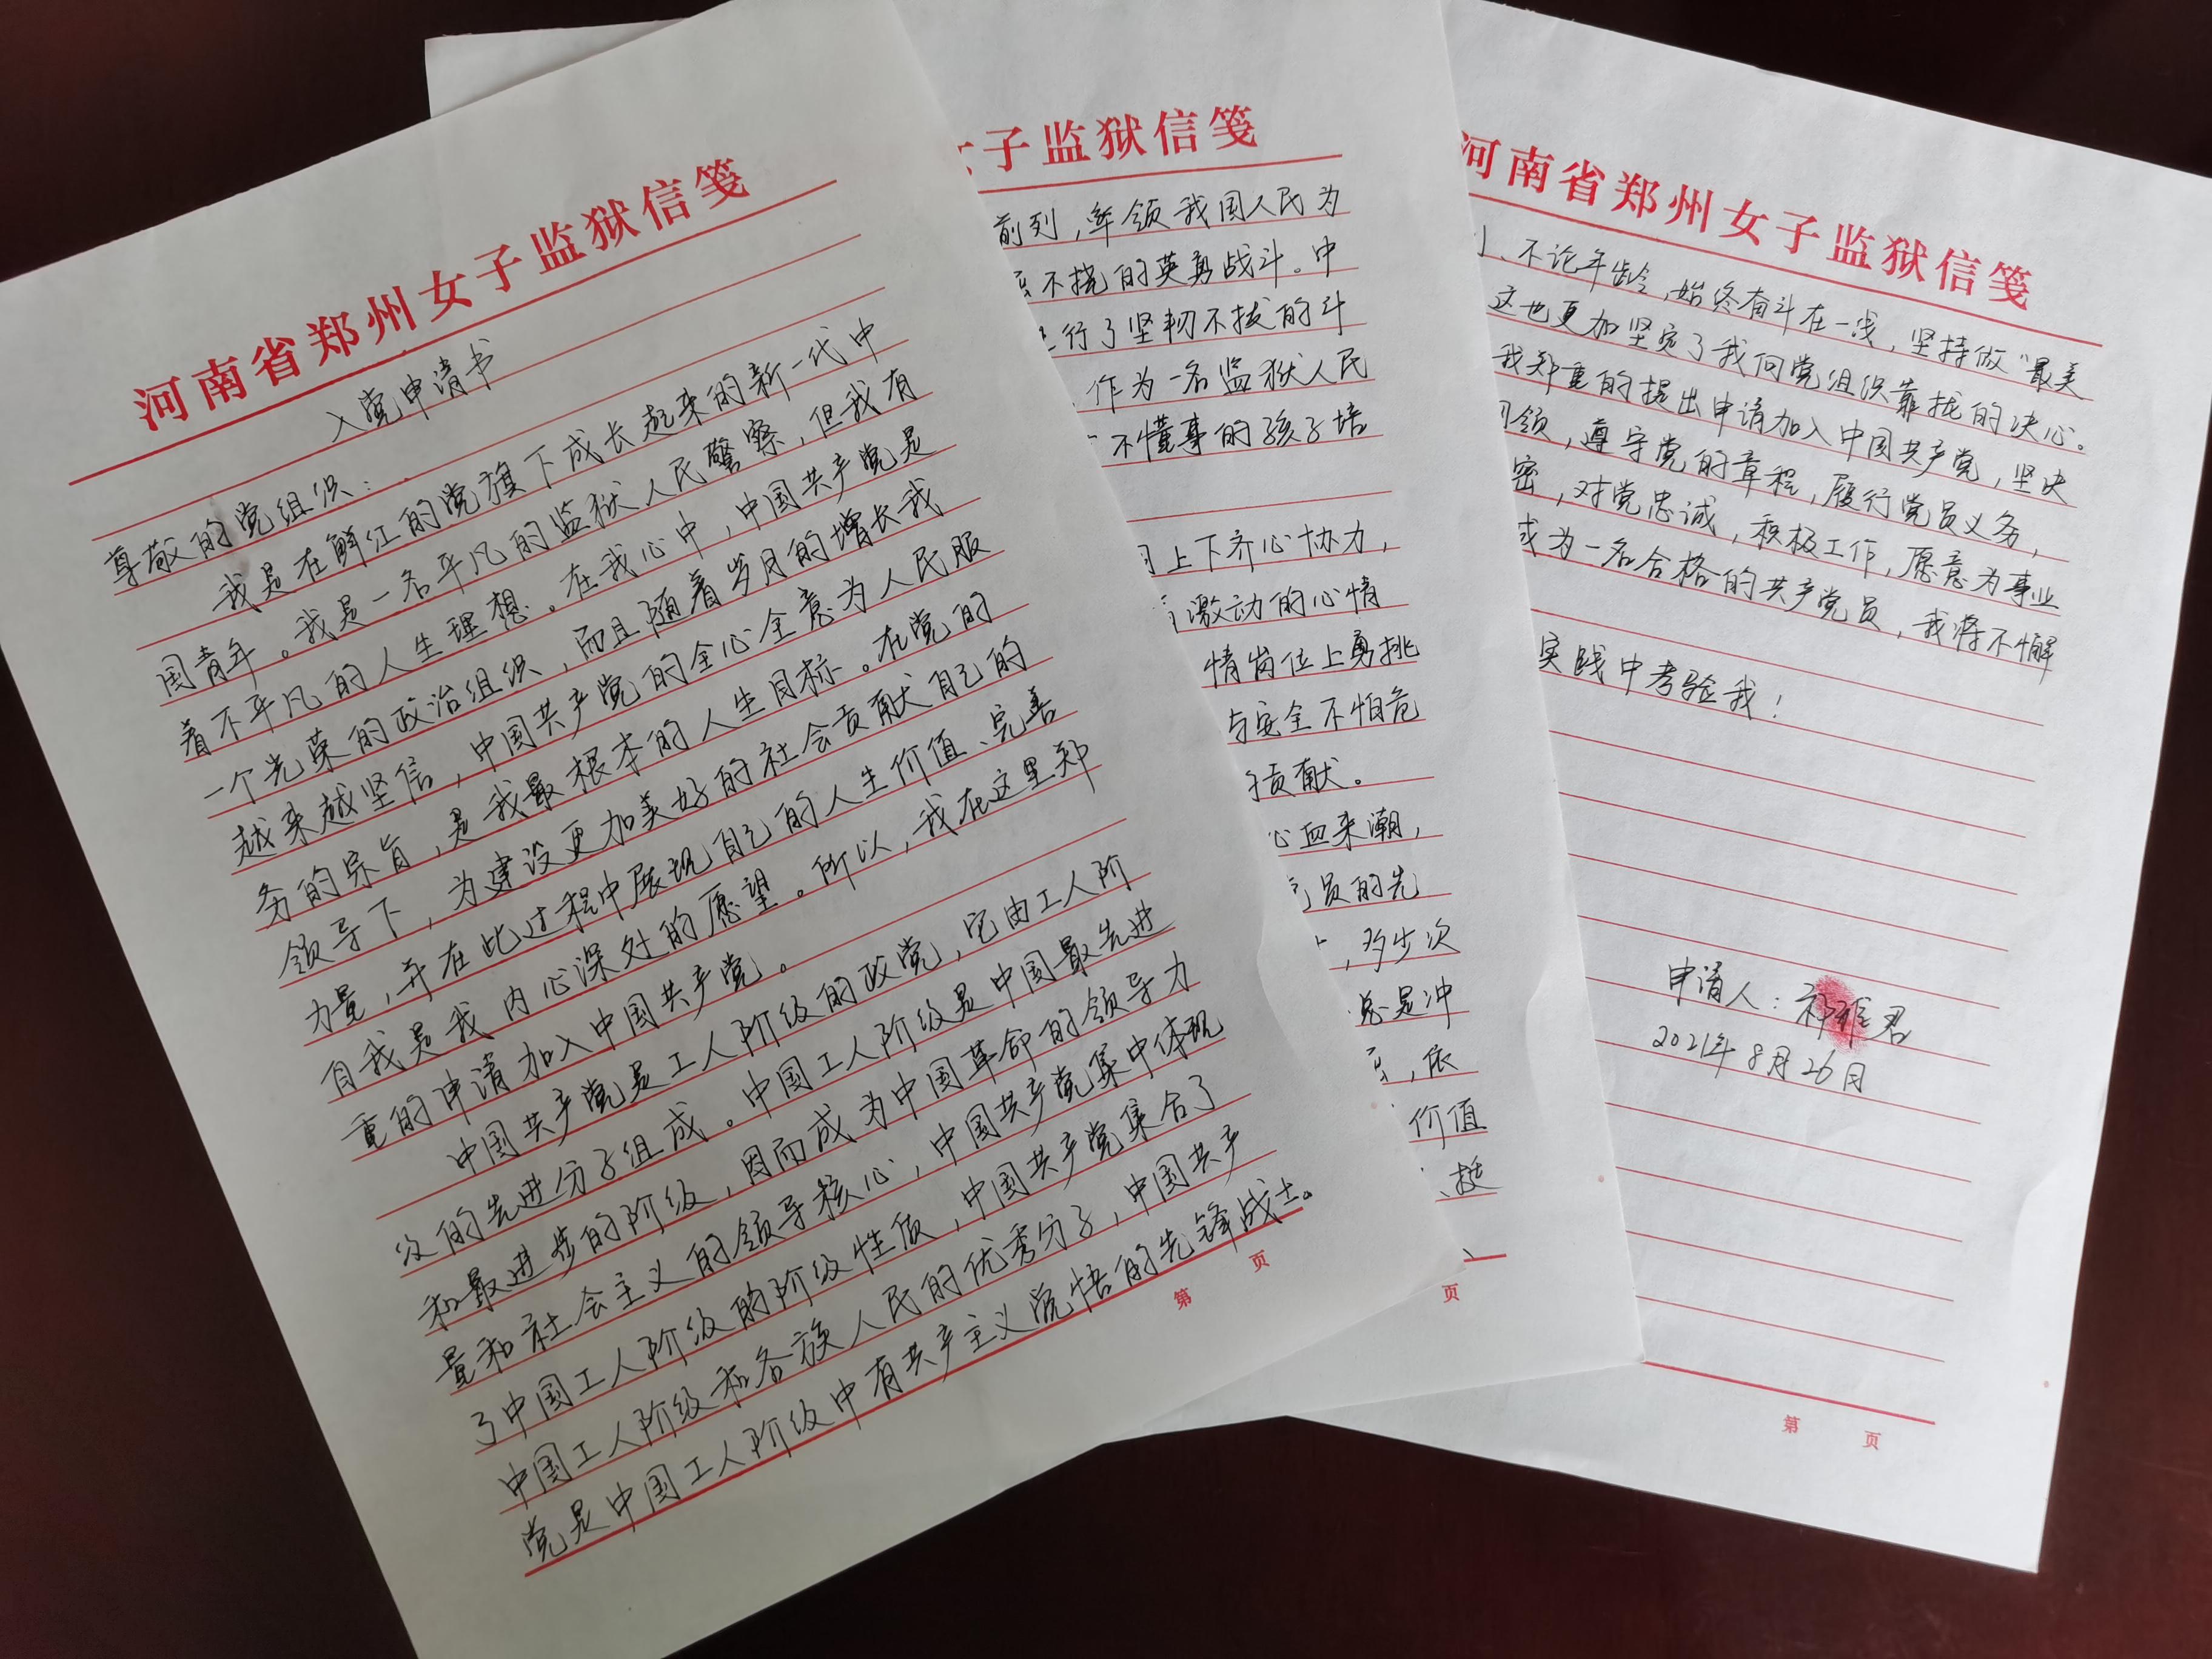 河南省郑州女子监狱信笺
入党申请书
尊敬的党组织：
我是在鲜红的党旗下成长起来的新一代中
国青年。我是一名平凡的监狱人民警察，但我有
着不平凡的人生理想。在我心中，中国共产党是
一个光荣的政治组织，而且随着岁月的增长我
越来越坚信，中国共产党的全心全意为人民服
务的宗旨，是我最根本的人生目标。在党的
领导下，为建设更加美好的社会贡献自己的
力量，并在此过程中展现自己的人生价值、完善
自我是我内心深处的愿望。所以，我在这里郑
重的申请加入中国共产党。
中国共产党是工人阶级的政党，它由工人阶
级的先进分子组成。中国工人阶级是中国最先进
和最进步的阶级，因而成为中国革命的领导力
量和社会主义的领导核心，中国共产党集中体现
了中国工人阶级的阶级性质，中国共产党集合了
中国工人阶级和各族人民的优秀分子，中国共产
党是中国工人阶级中有共产主义觉悟的先锋战士。
第 页
女子监狱信笺
前列，率领我国人民为
不挠的英勇战斗。中
行了坚韧不拔的斗
作为一名监狱人民
不懂事的孩子培
上下齐心协力，
激动的心情
情岗位上勇挑
与安全不怕危
贡献。
心血来潮，
员的先
，多少次
总是冲
，依
价值
、挺
页
河南省郑州女子监狱信笺
、不论年龄，始终奋斗在一线，坚持做“最美
这也更加坚定了我向党组织靠拢的决心。
我郑重的提出申请加入中国共产党，坚决
纲领，遵守党的章程，履行党员义务，
密，对党忠诚，积极工作，愿意为事业
成为一名合格的共产党员，我将不懈
实践中考验我！
申请人：祁雅君
2021年8月26日
第 页